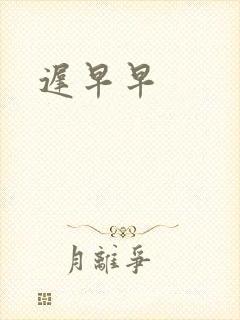 遲早早
月離爭